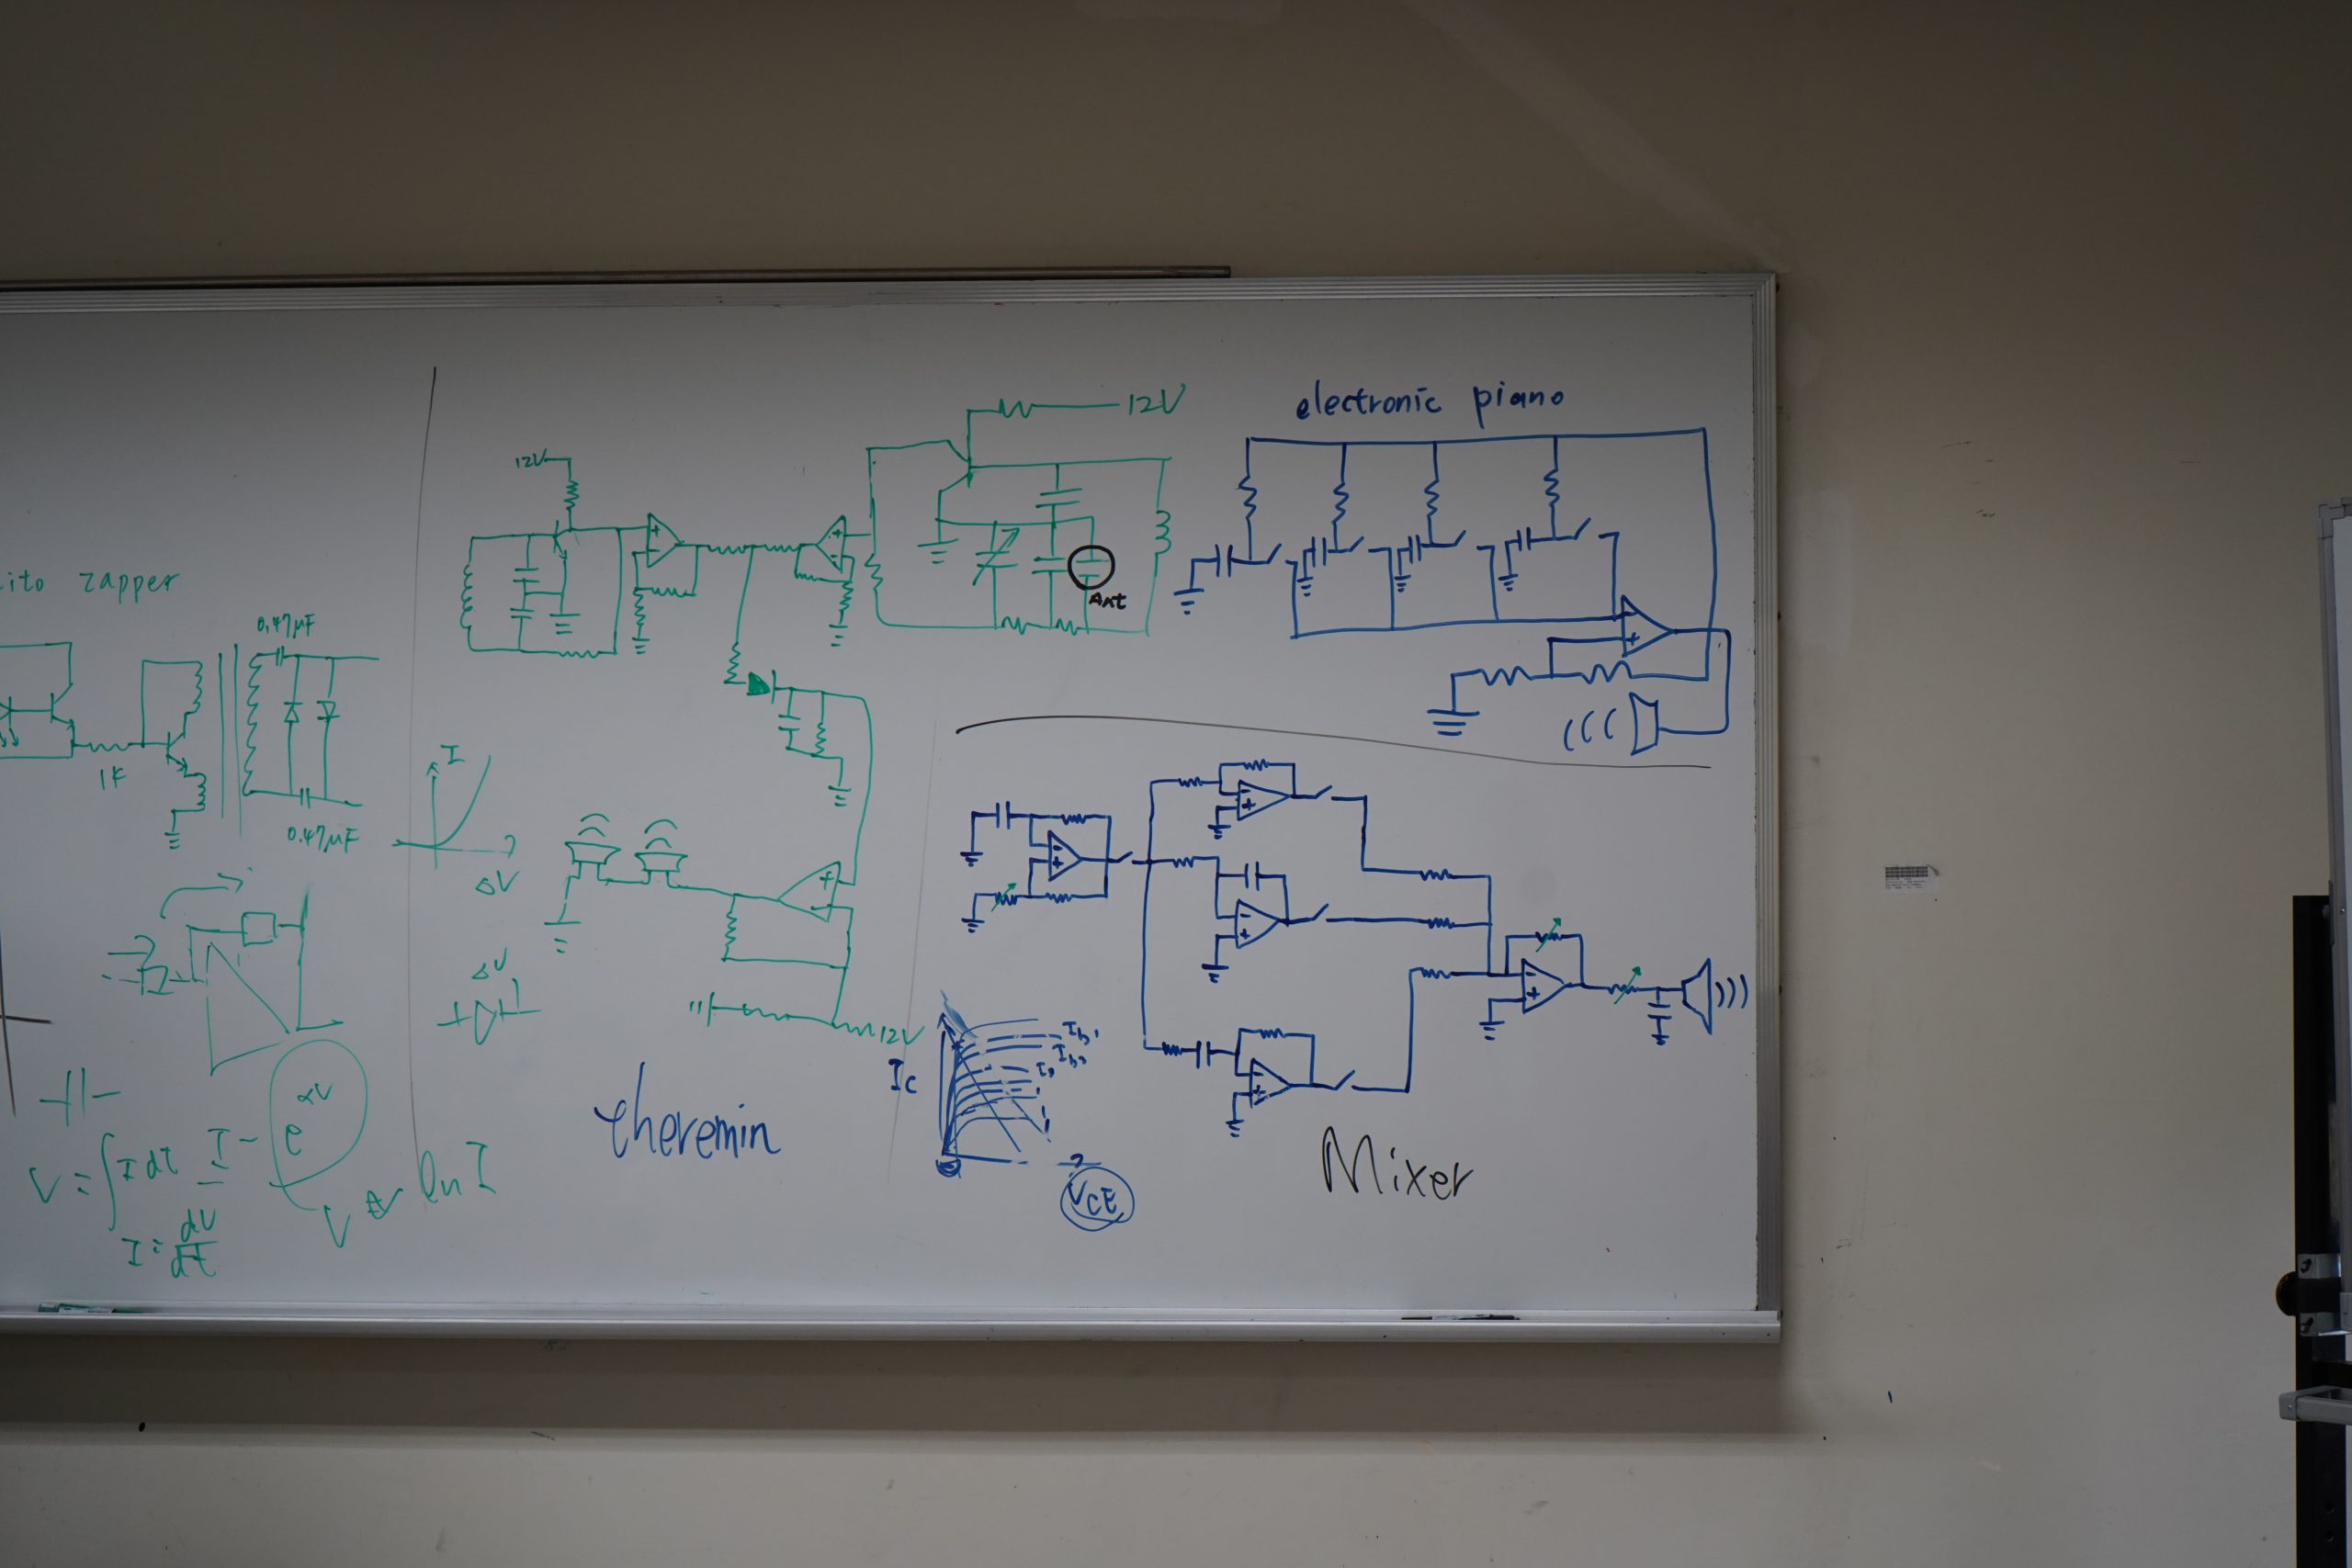 ito zapper
0.47μF
1K
0.47μF
I
ΔV
ΔV
V = ∫ I dt
I = dV/dt
I - e^αV
V ∝ ln I
12V
12V
Ant
12V
theremin
electronic piano
Ic
Ib1
Ib2
VCE
Mixer